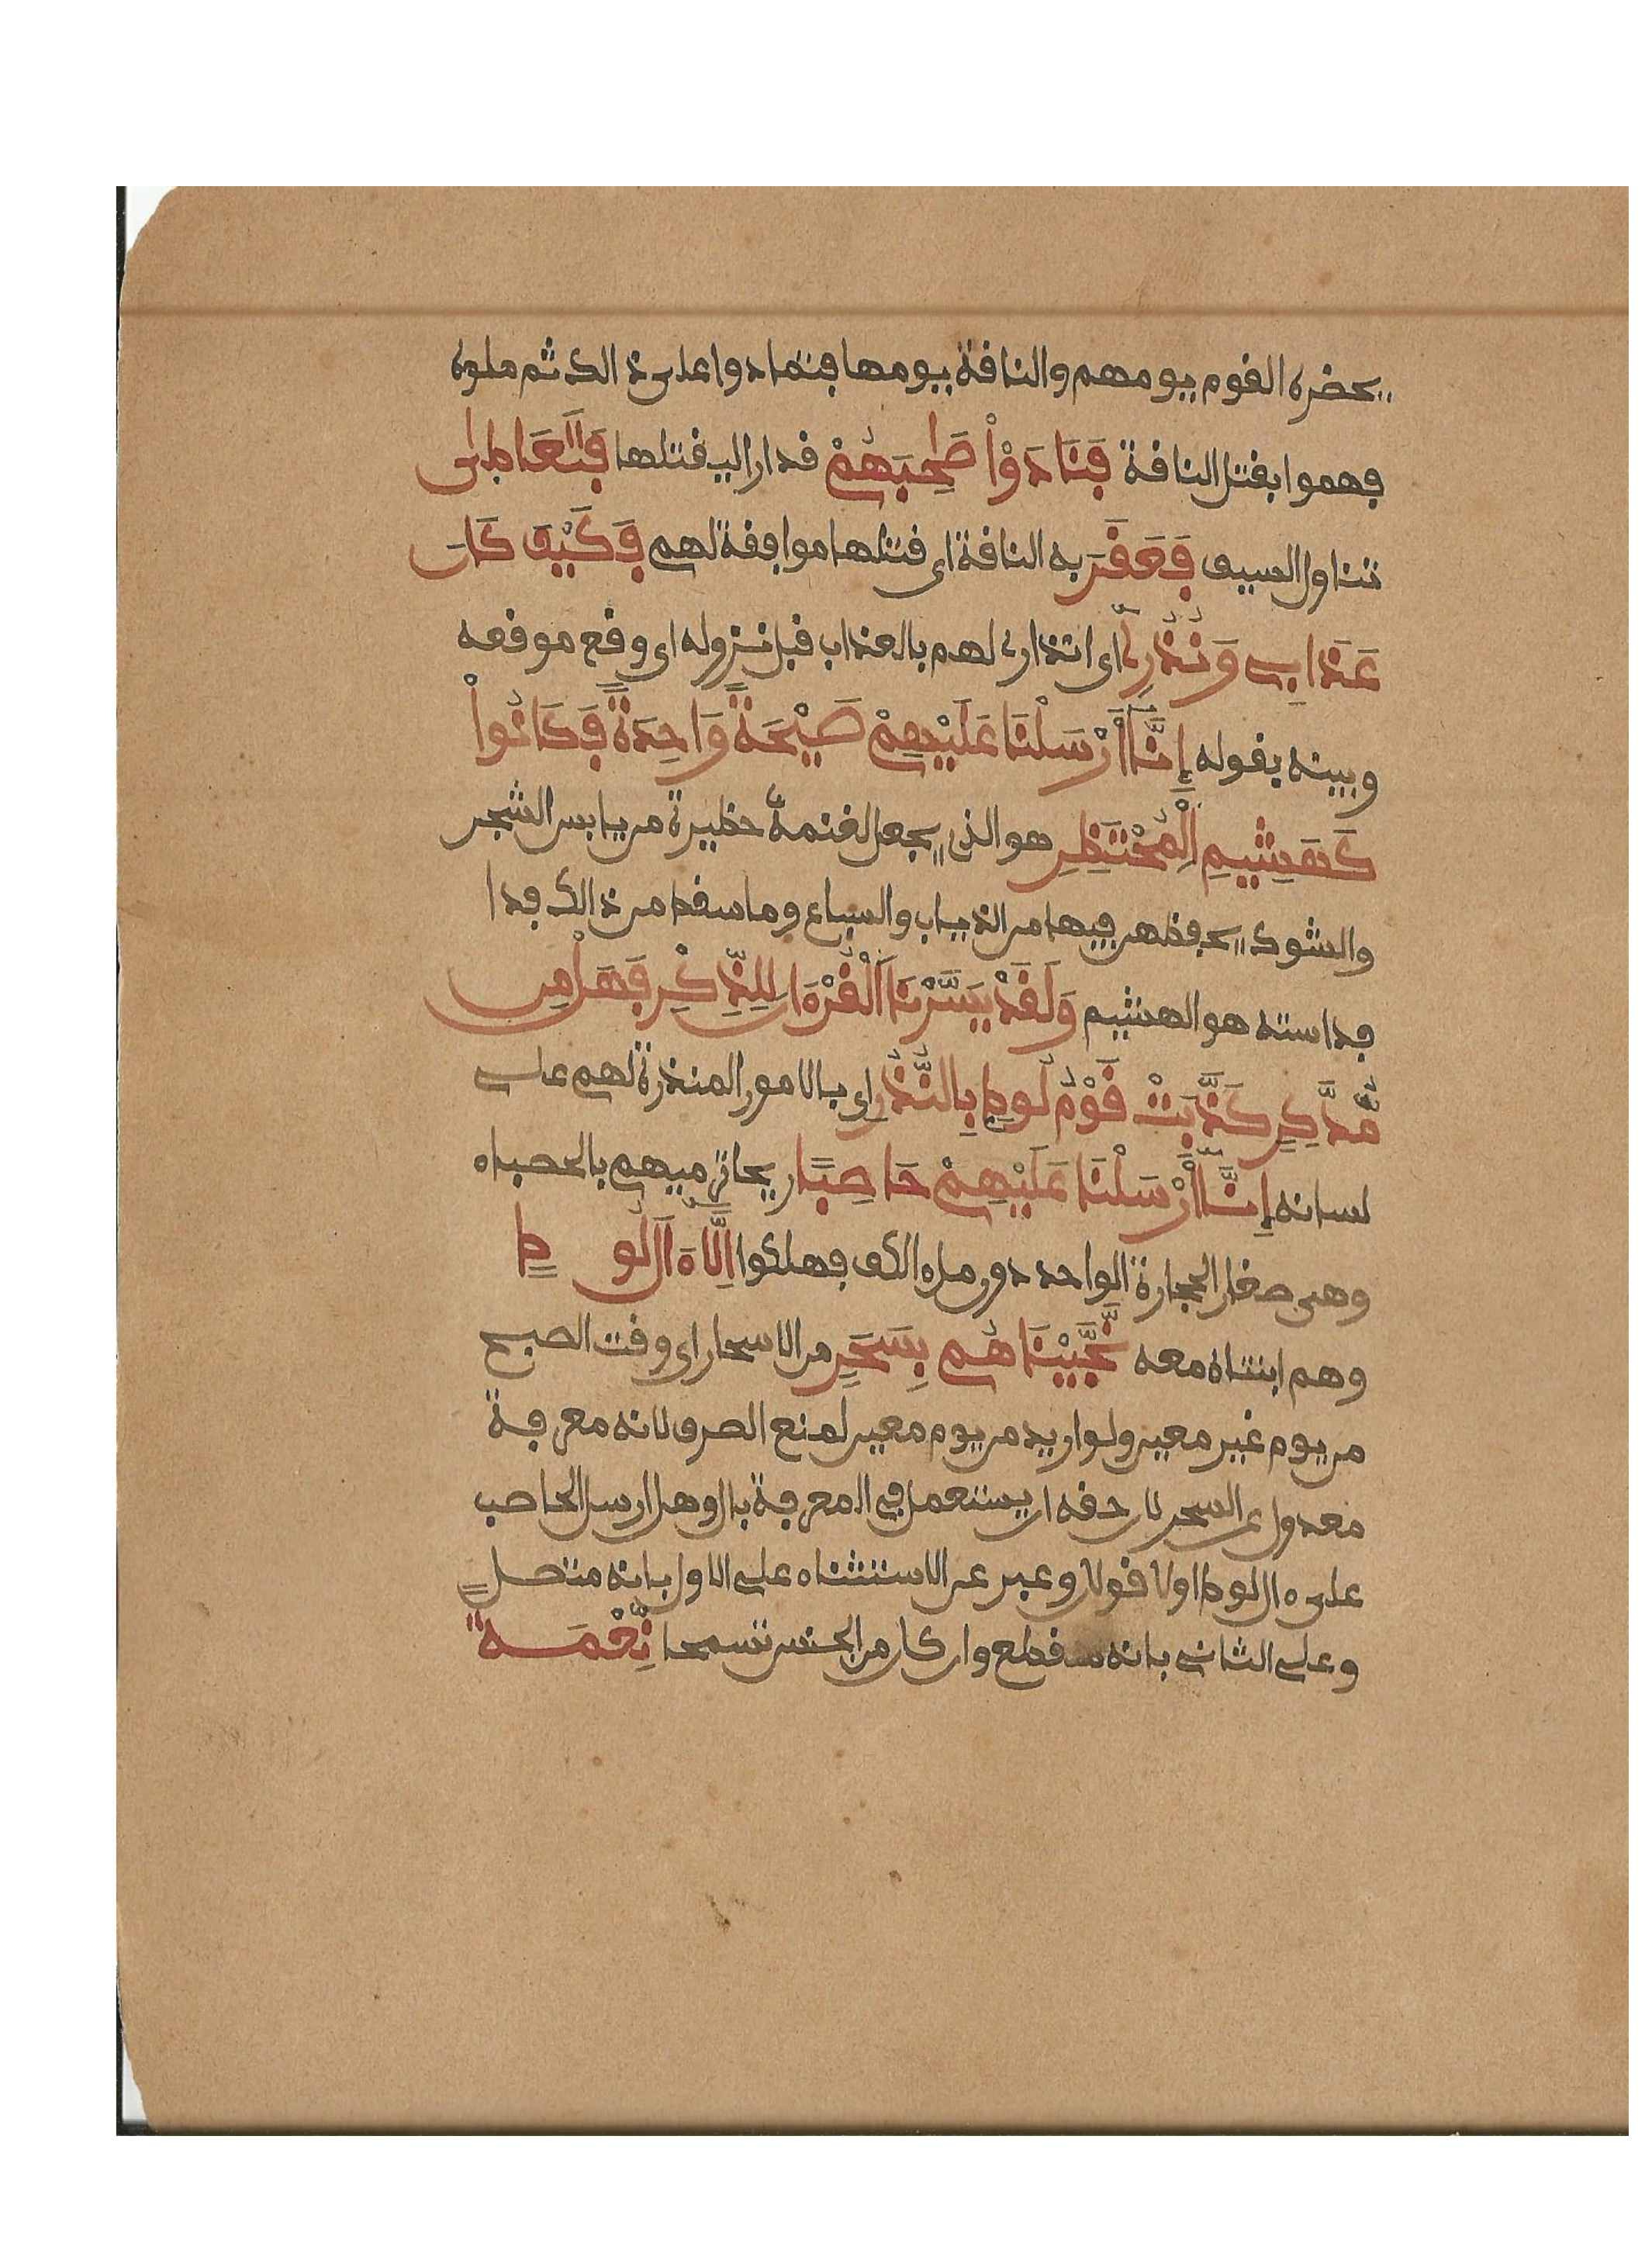 يحضره القوم يومهم والناقة يومها فتمادوا على ذالك ثم ملوه
فهموا بقتل الناقة فَنَادَوْاْ صَٰحِبَهُمْ قدارا ليقتلها فَتَعَاطَىٰ
تناول السيف فَعَقَرَ به الناقة اى قتلها موافقة لهم فَكَيْفَ كَانَ
عَذَابِى وَنُذُرِ اى انذارى لهم بالعذاب قبل نزوله اى وقع موقعه
وبينه بقوله إِنَّا أَرْسَلْنَا عَلَيْهِمْ صَيْحَةً وَاحِدَةً فَكَانُواْ
كَهَشِيمِ الْمُحْتَظِرِ هو الذى يجعل لغنمه حظيرة من يابس الشجر
والشوك يحفظهن فيها من الذياب والسباع وما سقط من ذالك فدا
فداسته هو الهشيم وَلَقَدْ يَسَّرْنَا الْقُرْءَانَ لِلذِّكْرِ فَهَلْ مِن
مُّدَّكِرٍ كَذَّبَتْ قَوْمُ لُوطٍ بِالنُّذُرِ اى بالامور المنذرة لهم على
لسانه إِنَّا أَرْسَلْنَا عَلَيْهِمْ حَاصِبًا ريحا ترميهم بالحصباء
وهى صغار الحجارة الواحد دون ملء الكف فهلكوا إِلَّا ءَالَ لُوطٍ
وهم ابنتاه معه نَّجَّيْنَاهُم بِسَحَرٍ من الاسحار اى وقت الصبح
من يوم غير معين ولو اريد من يوم معين لمنع الصرف لانه معرفة
معدول عن السحر لان حقه ان يستعمل فى المعرفة بال وهل ارسل الحاصب
على ءال لوط اولا قولان وعبر عن الاستثناء على الاول بانه متصل
وعلى الثانى بانه منقطع وان كان من الجنس تسمحا نِّعْمَةً